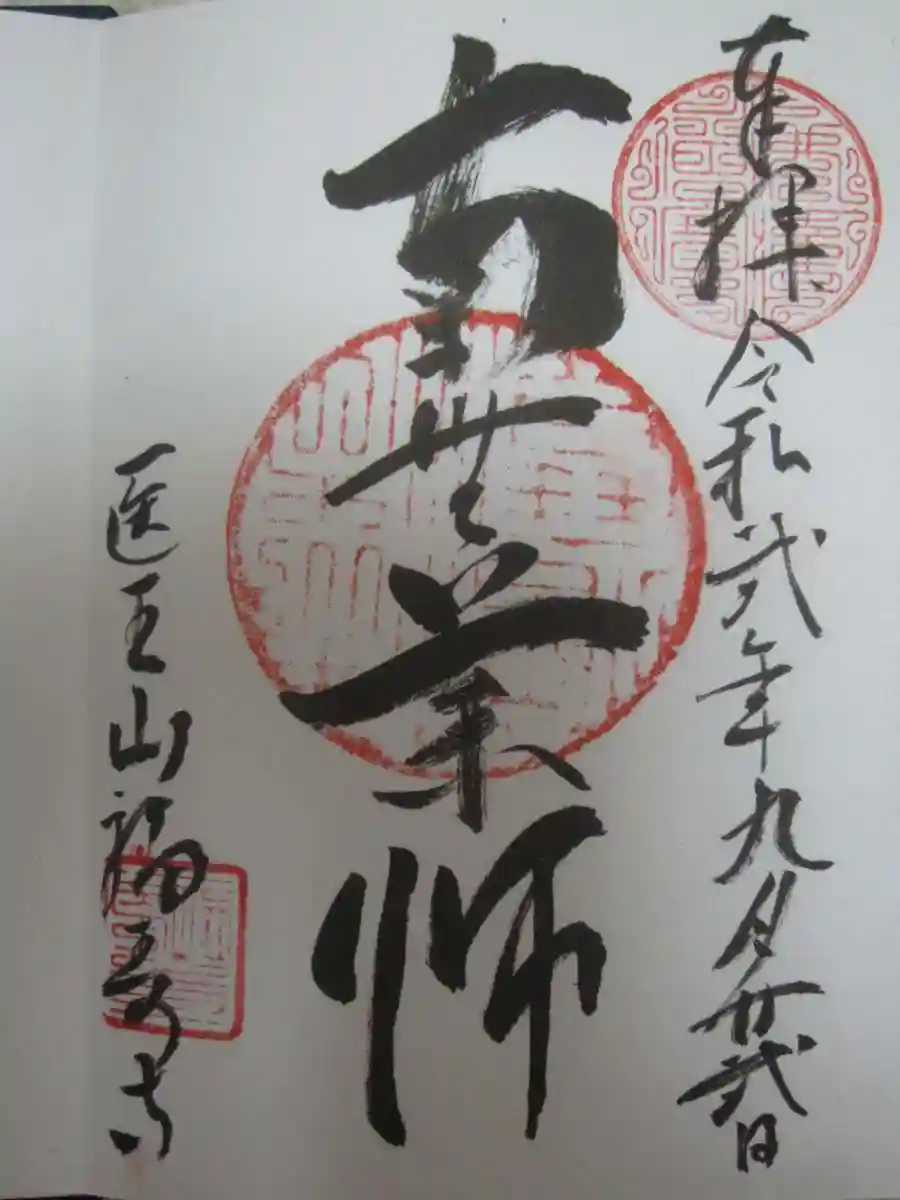 奉拝 令和弐年九月廿弐日
南無薬師
医王山福寿寺